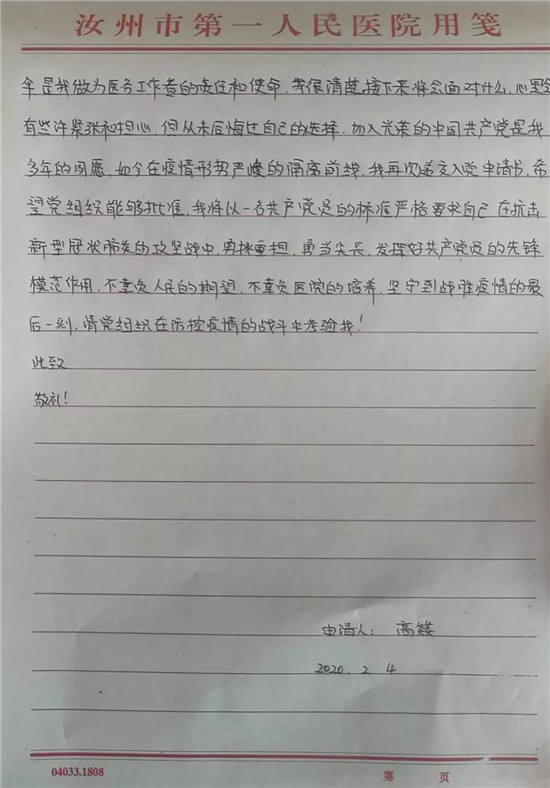 汝州市第一人民医院用笺
是我做为医务工作者的责任和使命,我很清楚接下来将会面对什么,心里
有些许紧张和担心,但从未后悔过自己的选择,加入光荣的中国共产党是我
多年的夙愿,如今在疫情形势严峻的隔离前线,我再次递交入党申请书,希
望党组织能够批准,我将以一名共产党员的标准严格要求自己,在抗击
新型冠状病毒的攻坚战中,勇挑重担,勇当尖兵,发挥好共产党员的先锋
模范作用,不辜负人民的期望,不辜负医院的培养,坚守到战胜疫情的最
后一刻,请党组织在防控疫情的战斗中考验我!
此致
敬礼!
申请人:高
2020.2.4
04033.1808
第 页